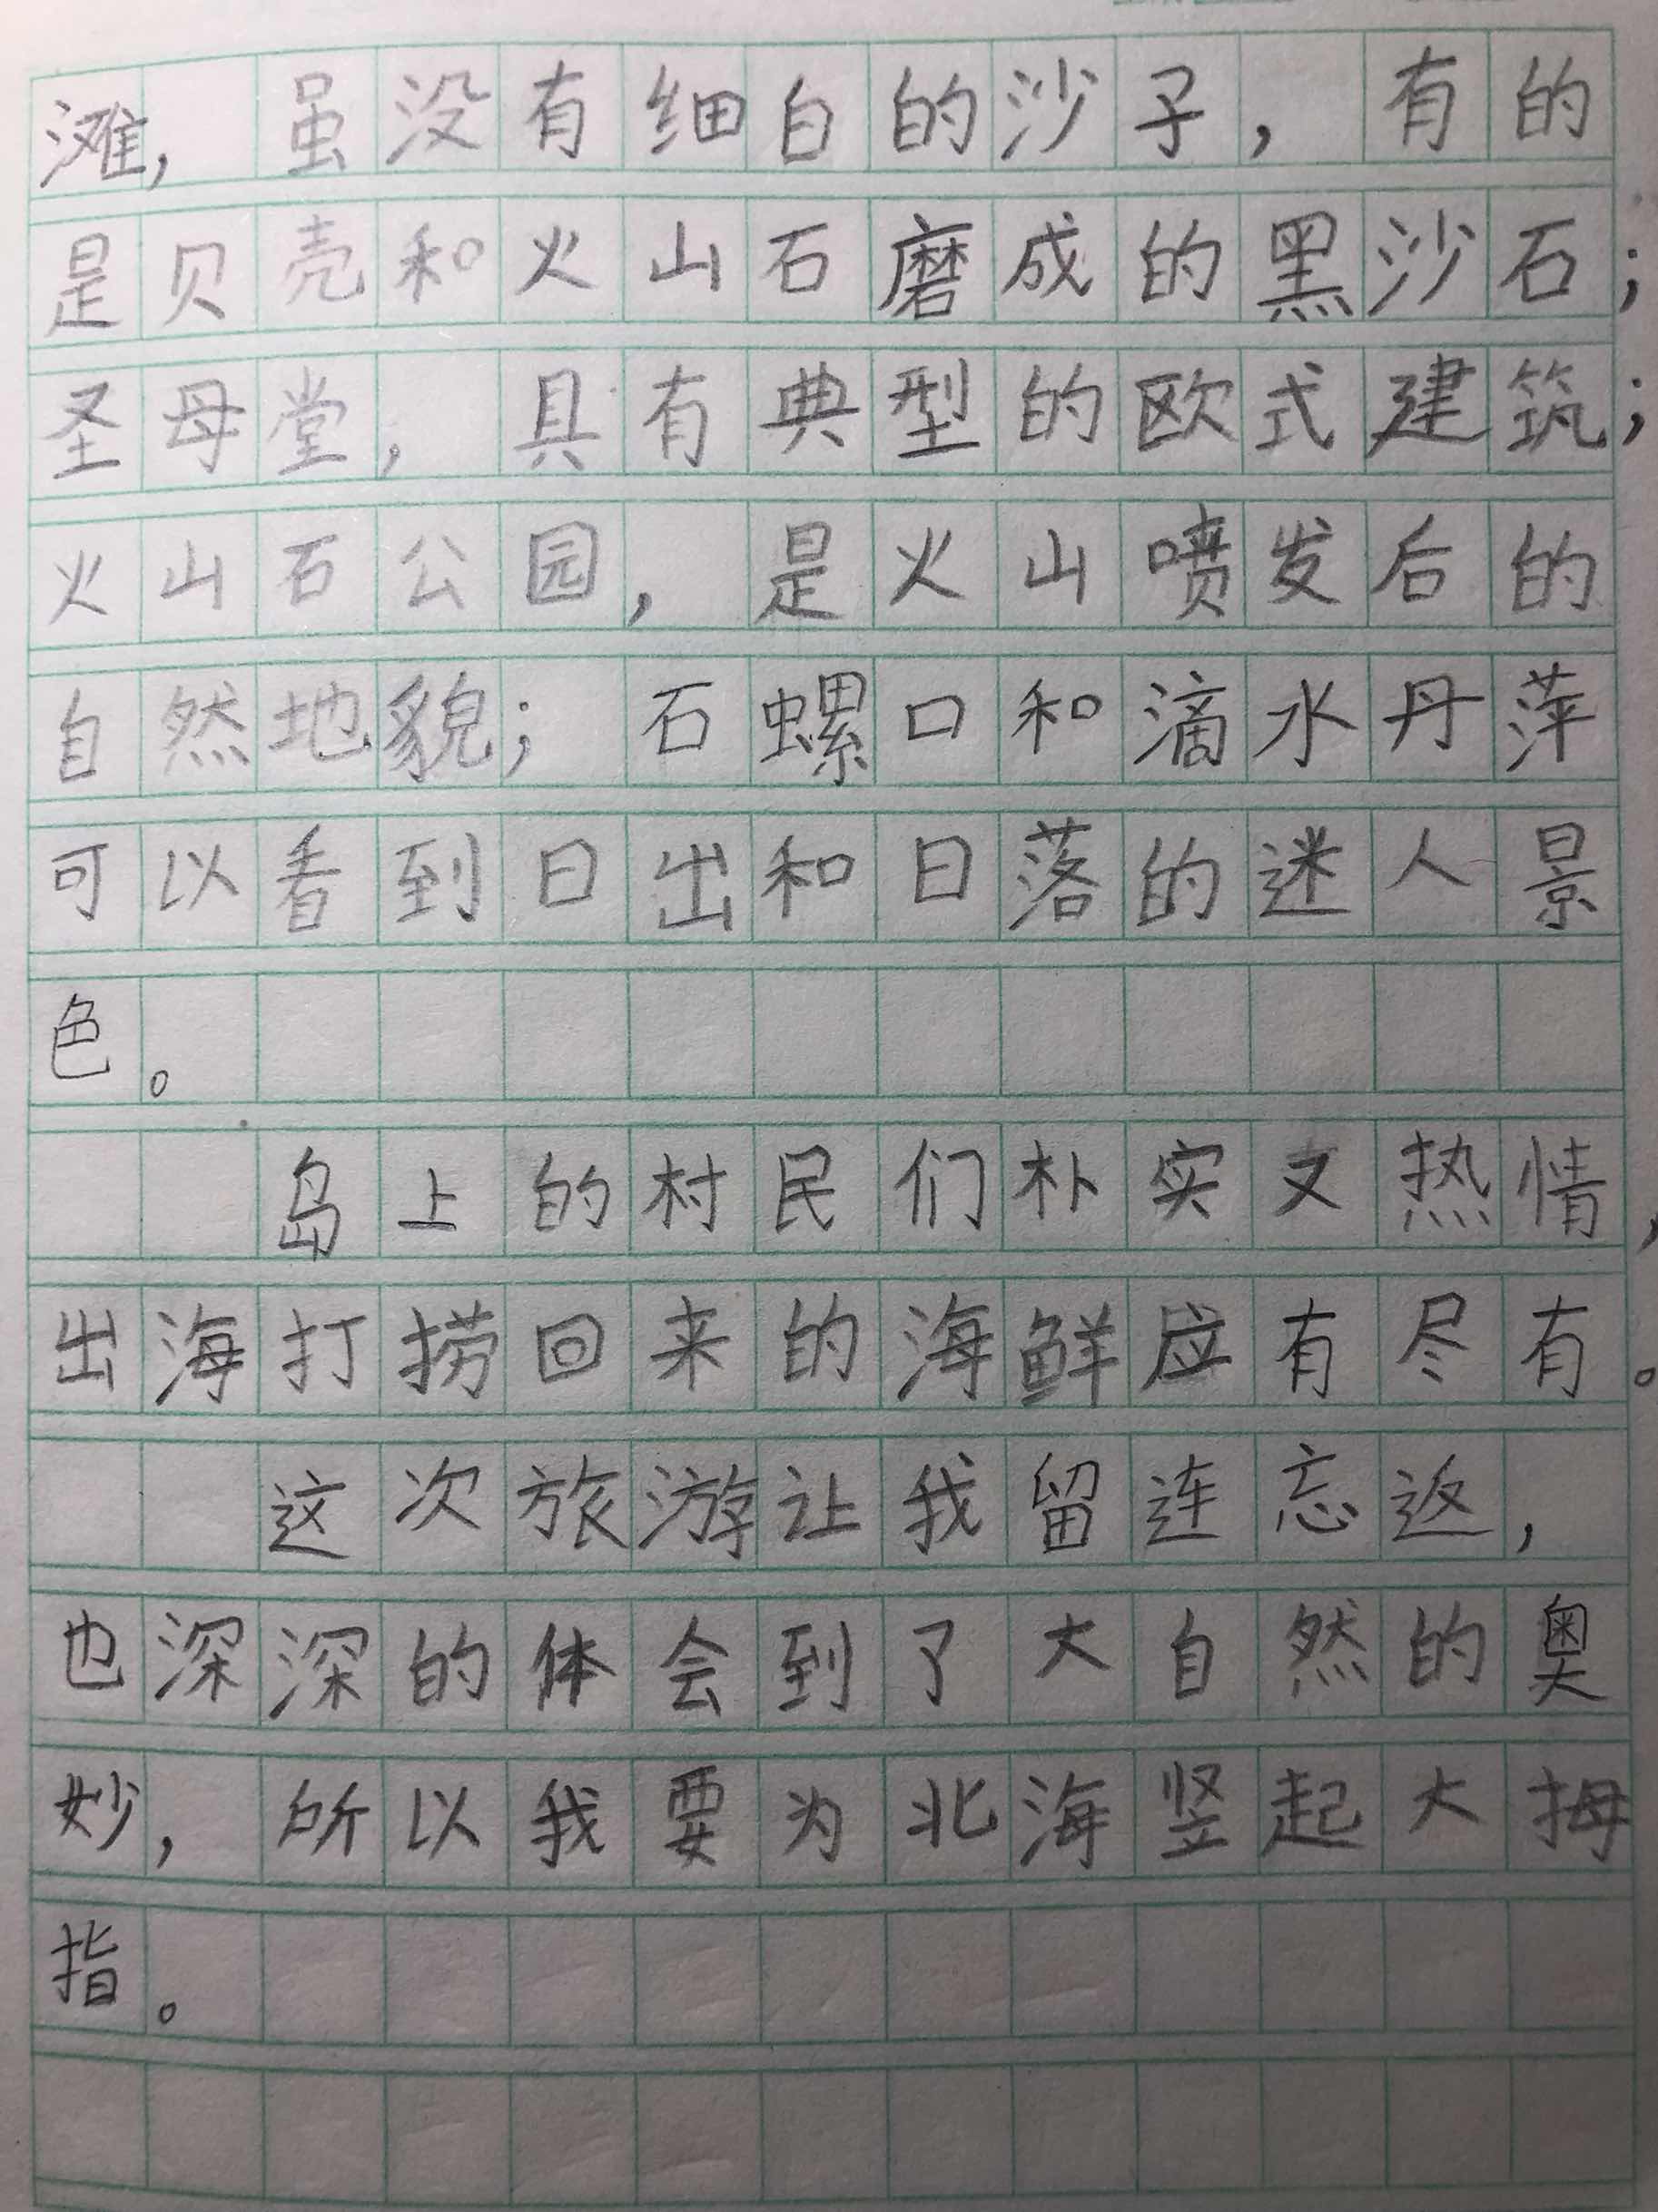 滩，虽没有细白的沙子，有的
是贝壳和火山石磨成的黑沙石；
圣母堂，具有典型的欧式建筑；
火山石公园，是火山喷发后的
自然地貌；石螺口和滴水丹萍
可以看到日出和日落的迷人景
色。
岛上的村民们朴实又热情，
出海打捞回来的海鲜应有尽有。
这次旅游让我留连忘返，
也深深的体会到了大自然的奥
妙，所以我要为北海竖起大拇
指。